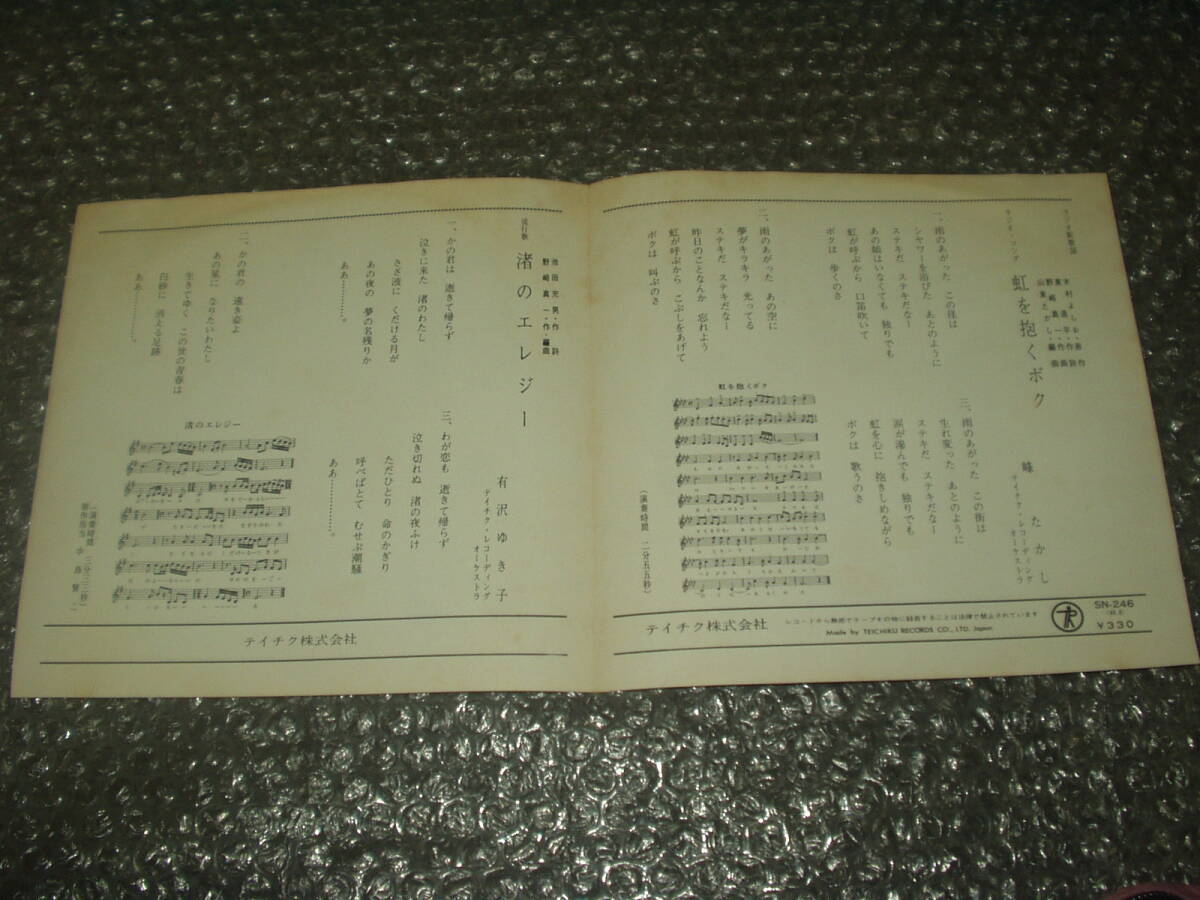 ラジオ・ソング
虹を抱くボク
峰たかし
テイチク・レコーディング
オーケストラ
一、雨のあがった この径は
シャワーを浴びた あとのように
ステキだ ステキだなー
あの娘はいなくても 独りでも
虹が呼ぶから 口笛吹いて
ボクは 歩くのさ
二、雨のあがった あの空に
夢がキラキラ 光ってる
ステキだ ステキだなー
昨日のことなんか 忘れよう
虹が呼ぶから こぶしをあげて
ボクは 叫ぶのさ
三、雨のあがった この街は
生れ変った あとのように
ステキだ ステキだなー
涙が滲んでも 独りでも
虹を心に 抱きしめながら
ボクは 歌うのさ
虹を抱くボク
(演奏時間 二分五五秒)
テイチク株式会社
レコードから無断でテープその他に録音することは法律で禁止されています
Made by TEICHIKU RECORDS CO., LTD. Japan.
SN-246
¥330
流行歌
渚のエレジー
池田充男・作詩
野崎真一・作・編曲
有沢ゆき子
テイチク・レコーディング
オーケストラ
一、かの君は 逝きて帰らず
泣きに来た 渚のわたし
さざ波に くだける月が
あの夜の 夢の名残りか
ああ…………。
二、かの君の 遠き姿よ
あの星に なりたいわたし
生きてゆく この世の青春は
白砂に 消える足跡
ああ…………。
三、わが恋も 逝きて帰らず
泣き切れぬ 渚の夜ふけ
ただひとり 命のかぎり
呼べばとて むせぶ潮騒
ああ…………。
渚のエレジー
(演奏時間 三分三三秒)
テイチク株式会社